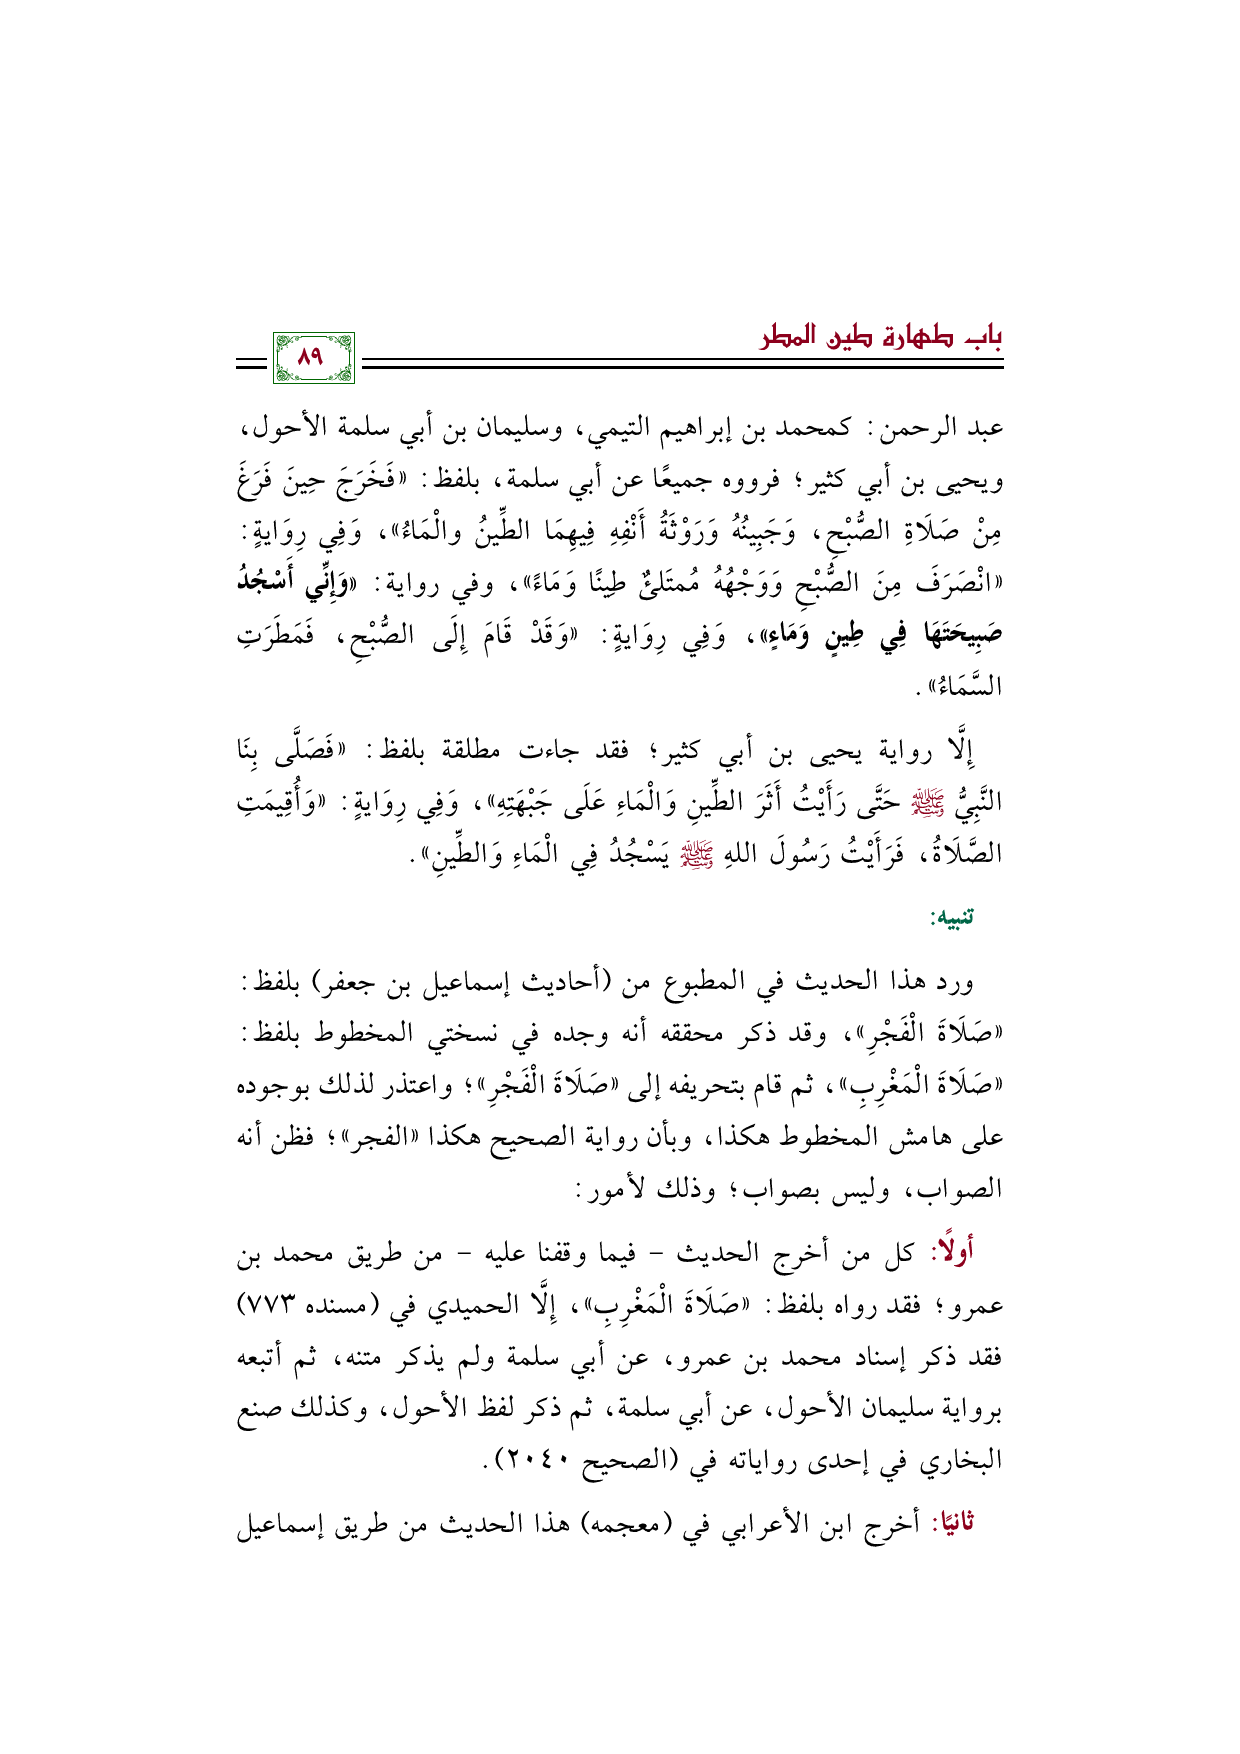 باب طهارة طين المطر
٨٩
عبد الرحمن: كمحمد بن إبراهيم التيمي، وسليمان بن أبي سلمة الأحول،
ويحيى بن أبي كثير؛ فرووه جميعًا عن أبي سلمة، بلفظ: «فَخَرَجَ حِينَ فَرَغَ
مِنْ صَلَاةِ الصُّبْحِ، وَجَبِينُهُ وَرَوْثَةُ أَنْفِهِ فِيهِمَا الطِّينُ والْمَاءُ»، وَفِي رِوَايةٍ:
«انْصَرَفَ مِنَ الصُّبْحِ وَوَجْهُهُ مُمتَلئٌ طِينًا وَمَاءً»، وفي رواية: «وَإِنِّي أَسْجُدُ
صَبِيحَتَهَا فِي طِينٍ وَمَاءٍ»، وَفِي رِوَايةٍ: «وَقَدْ قَامَ إِلَى الصُّبْحِ، فَمَطَرَتِ
السَّمَاءُ».
إِلَّا رواية يحيى بن أبي كثير؛ فقد جاءت مطلقة بلفظ: «فَصَلَّى بِنَا
النَّبِيُّ ﷺ حَتَّى رَأَيْتُ أَثَرَ الطِّينِ وَالْمَاءِ عَلَى جَبْهَتِهِ»، وَفِي رِوَايةٍ: «وَأُقِيمَتِ
الصَّلَاةُ، فَرَأَيْتُ رَسُولَ اللهِ ﷺ يَسْجُدُ فِي الْمَاءِ وَالطِّينِ».
تنبيه:
ورد هذا الحديث في المطبوع من (أحاديث إسماعيل بن جعفر) بلفظ:
«صَلَاةَ الْفَجْرِ»، وقد ذكر محققه أنه وجده في نسختي المخطوط بلفظ:
«صَلَاةَ الْمَغْرِبِ»، ثم قام بتحريفه إلى «صَلَاةَ الْفَجْرِ»؛ واعتذر لذلك بوجوده
على هامش المخطوط هكذا، وبأن رواية الصحيح هكذا «الفجر»؛ فظن أنه
الصواب، وليس بصواب؛ وذلك لأمور:
أولًا: كل من أخرج الحديث – فيما وقفنا عليه – من طريق محمد بن
عمرو؛ فقد رواه بلفظ: «صَلَاةَ الْمَغْرِبِ»، إِلَّا الحميدي في (مسنده ٧٧٣)
فقد ذكر إسناد محمد بن عمرو، عن أبي سلمة ولم يذكر متنه، ثم أتبعه
برواية سليمان الأحول، عن أبي سلمة، ثم ذكر لفظ الأحول، وكذلك صنع
البخاري في إحدى رواياته في (الصحيح ٢٠٤٠).
ثانيًا: أخرج ابن الأعرابي في (معجمه) هذا الحديث من طريق إسماعيل